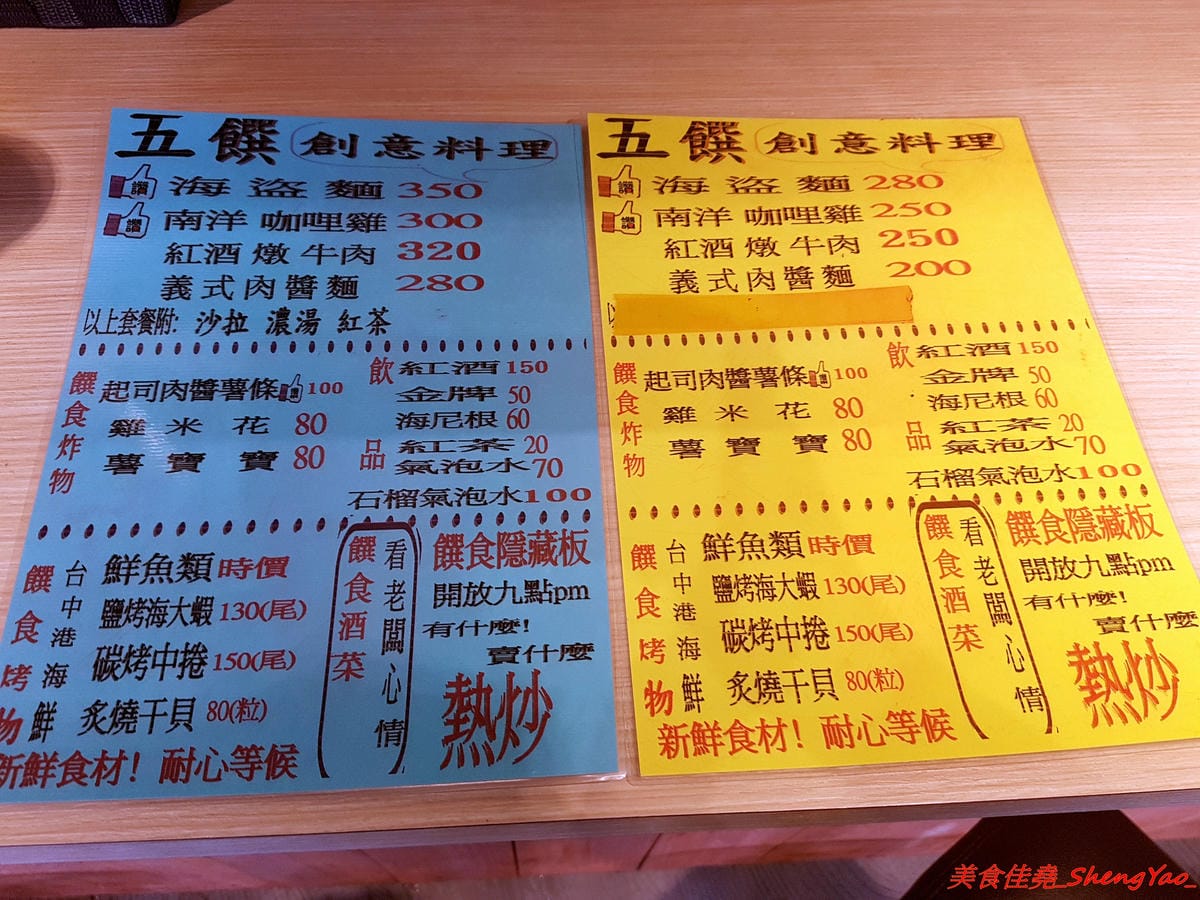 五饌 創意料理
讚 海盜麵 350
讚 南洋咖哩雞 300
紅酒燉牛肉 320
義式肉醬麵 280
以上套餐附: 沙拉 濃湯 紅茶
饌食炸物
起司肉醬薯條 讚 100
雞米花 80
薯寶寶 80
飲品
紅酒 150
金牌 50
海尼根 60
紅茶 20
氣泡水 70
石榴氣泡水 100
饌食烤物
台中港海鮮
鮮魚類 時價
鹽烤海大蝦 130(尾)
碳烤中捲 150(尾)
炙燒干貝 80(粒)
新鮮食材! 耐心等候
饌食酒菜
看老闆心情
饌食隱藏板
開放九點pm
有什麼!
賣什麼
熱炒
五饌 創意料理
讚 海盜麵 280
讚 南洋咖哩雞 250
紅酒燉牛肉 250
義式肉醬麵 200
饌食炸物
起司肉醬薯條 讚 100
雞米花 80
薯寶寶 80
飲品
紅酒 150
金牌 50
海尼根 60
紅茶 20
氣泡水 70
石榴氣泡水 100
饌食烤物
台中港海鮮
鮮魚類 時價
鹽烤海大蝦 130(尾)
碳烤中捲 150(尾)
炙燒干貝 80(粒)
新鮮食材! 耐心等候
饌食酒菜
看老闆心情
饌食隱藏板
開放九點pm
有什麼!
賣什麼
熱炒
美食佳堯_ShengYao_